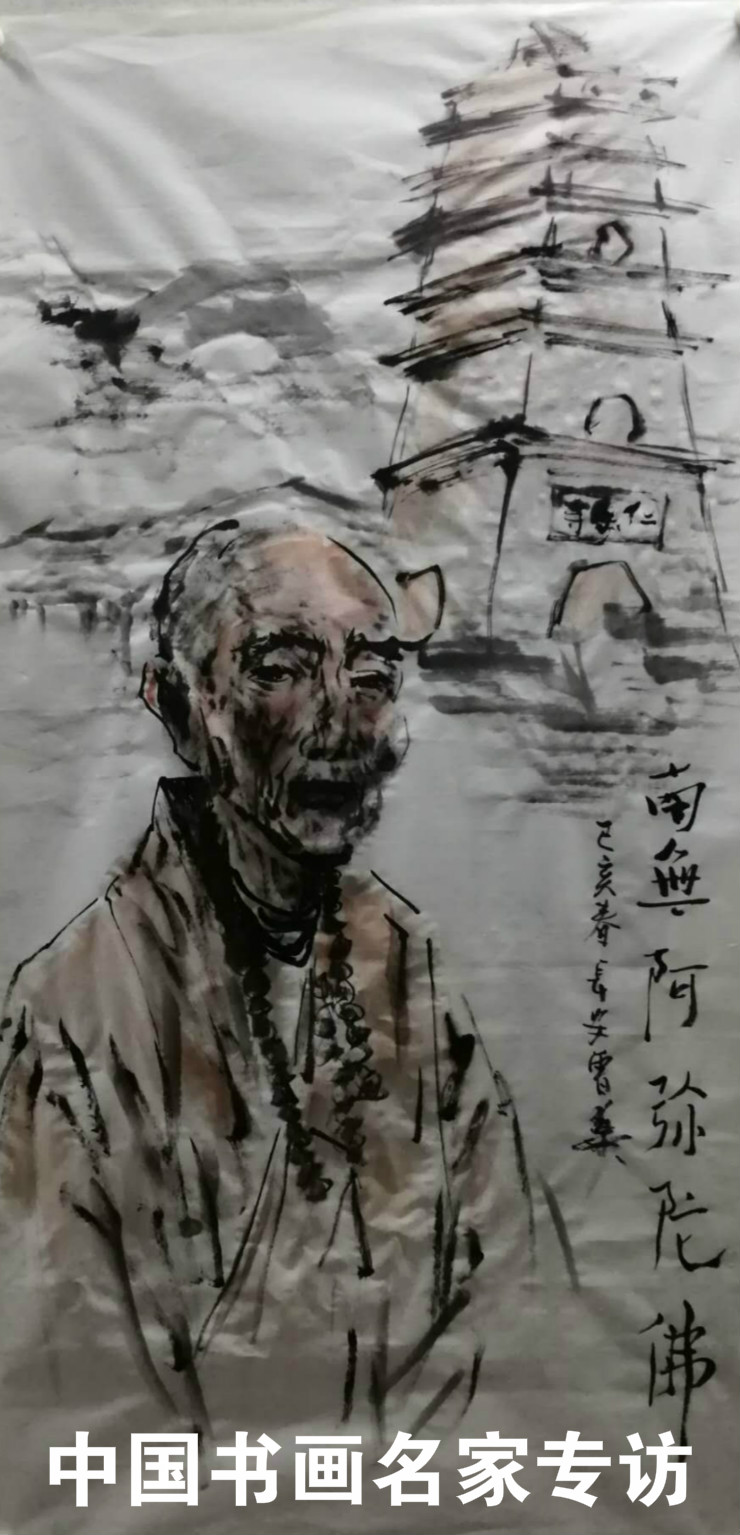 仁𫯎寺
南無阿弥陀佛
己亥春長安曾義
中国书画名家专访